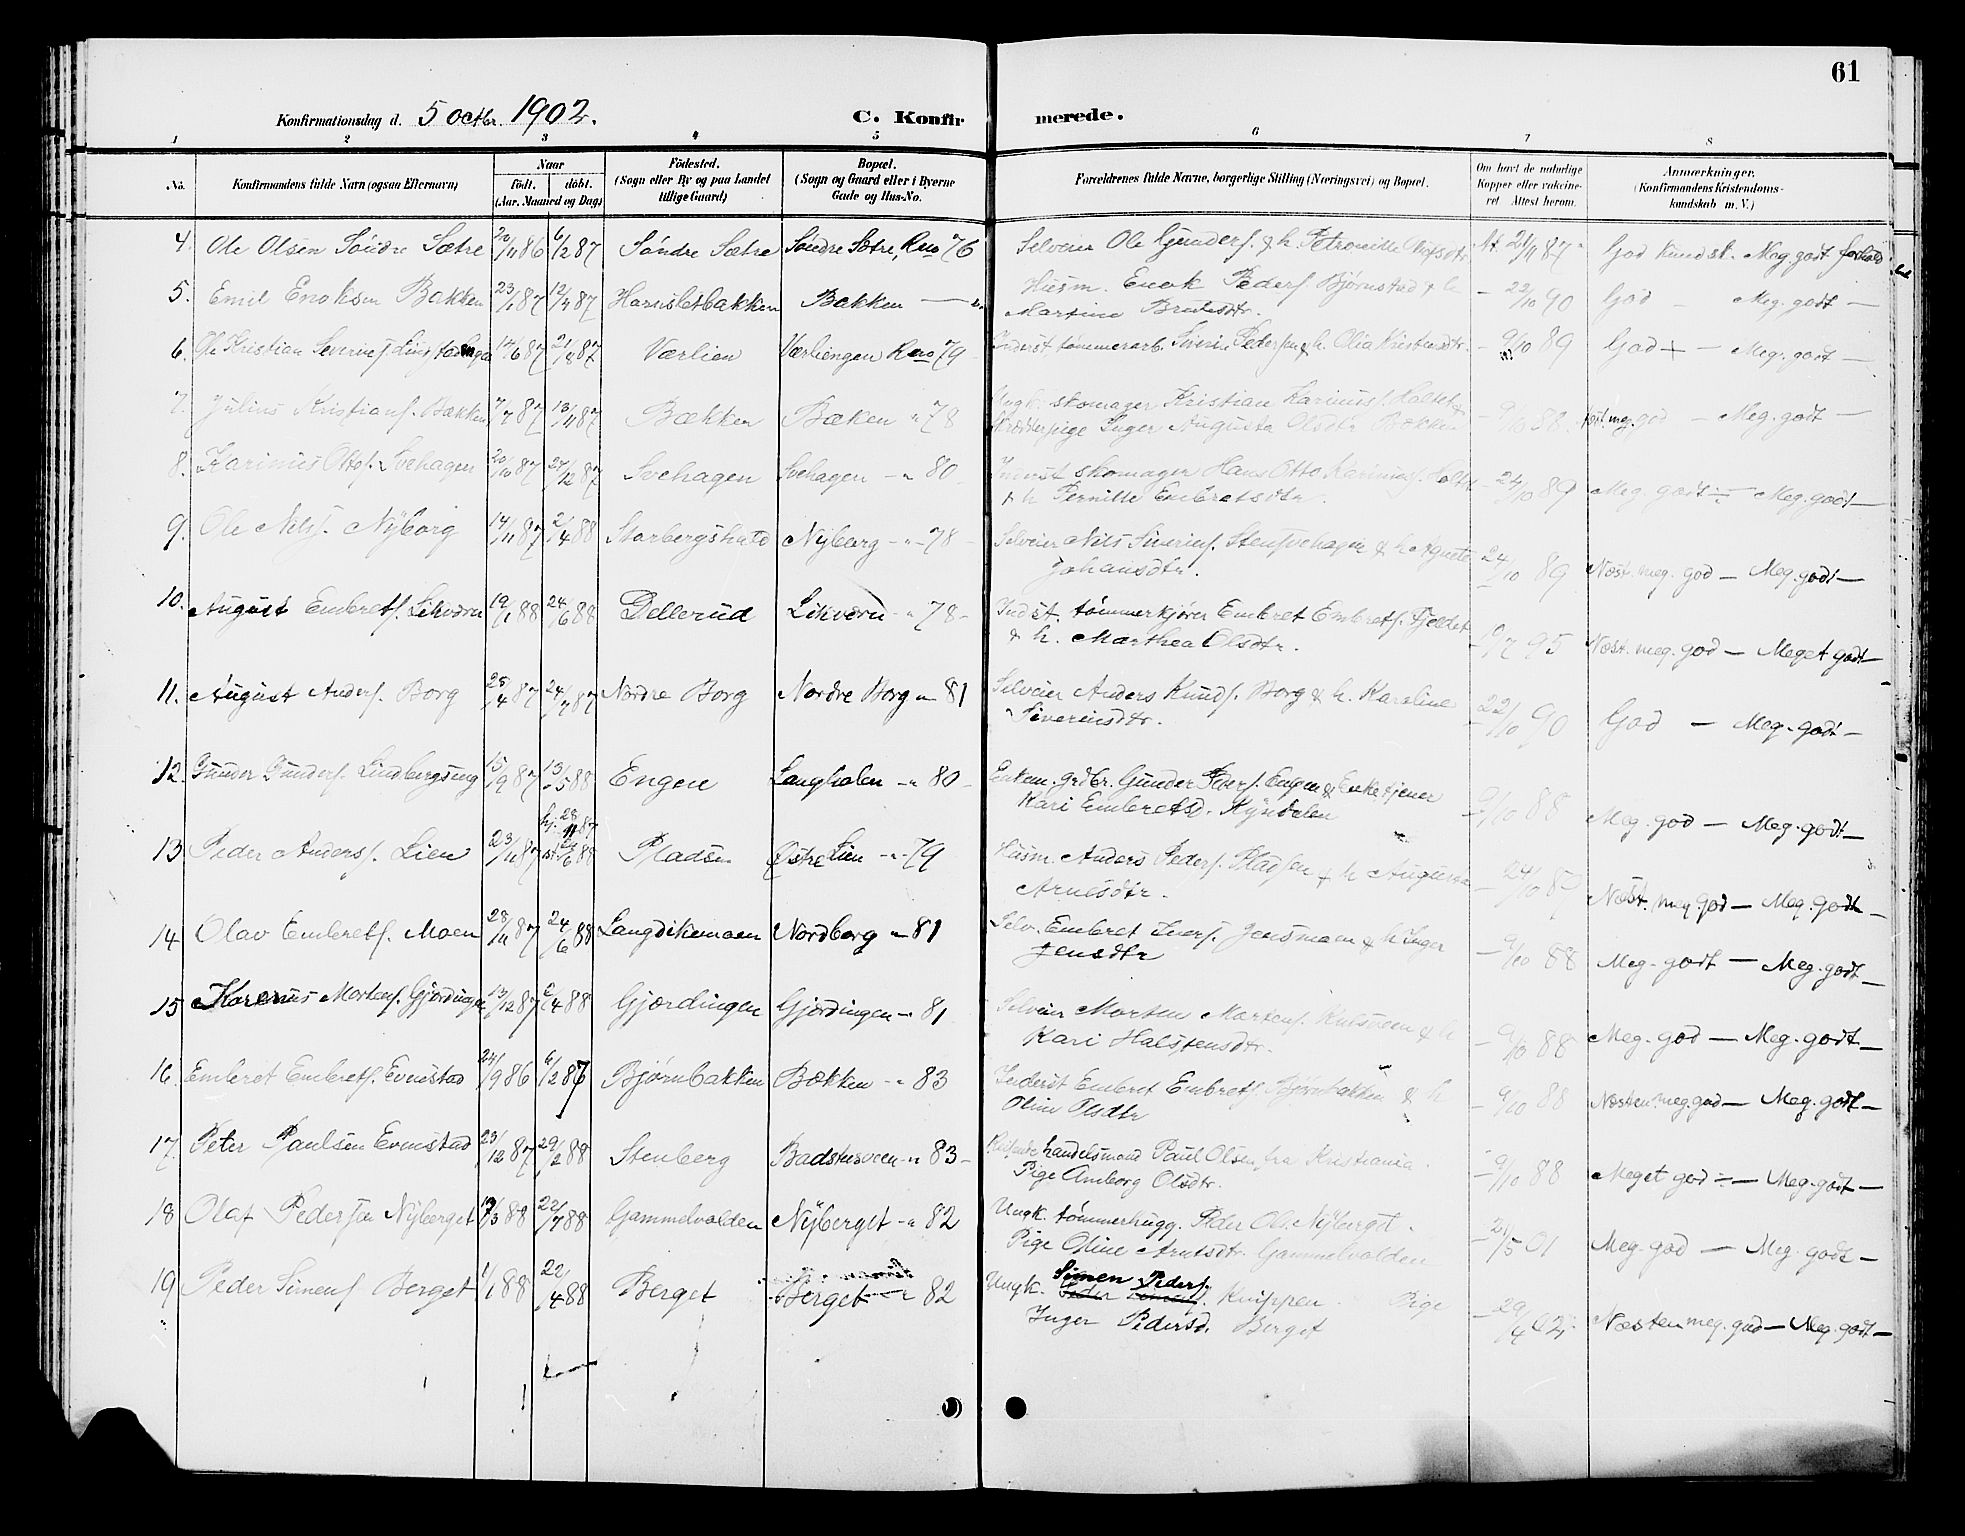 61
Konfirmationsdag d. 5 Octbr. 1902.
C. Konfirmerede.
1 2 3 4 5 6 7 8
No.
Konfirmandens fulde Navn (ogsaa Efternavn)
Naar
født. døbt.
(Aar, Maaned og Dag)
Fødested.
(Sogn eller By og paa Landet
tillige Gaard)
Bopæl.
(Sogn og Gaard eller i Byerne
Gade og Hus-No.
Forældrenes fulde Navne, borgerlige Stilling (Næringsvei) og Bopæl.
Om havt de naturlige
Kopper eller vakcine-
ret Attest herom.
Anmærkninger.
(Konfirmandens Kristendoms-
kundskab m. V.)
4. Ole Olsen Søndre Sætre 20/11 86 6/2 87 Søndre Sætre Søndre Sætre, Rno 76 Selveier Ole Gunders. & h. Petronille Olofsdtr. At. 21/11 87 God kundsk. Meg. godt forhold
5. Emil Enoksen Bakken 23/1 87 12/4 87 Harnsletbakken Bakken — Husm. Enok Peders. Bjørnstad & h
Martine Brntesdtr. - 22/10 90 God — Meg. godt —
6. Ole Kristian Severins. 14/6 87 21/8 87 Værlien Værliengen Rno 79 Inderst tømmerarb. Siverin Pedersen & h. Olia Kristensdtr. - 9/10 89 God + — Meg. godt —
7. Julius Kristians. Bækken 7/7 87 13/11 87 Bækken Bæken " 78 Ungk. skomager Kristian Karinius. Holtet &
Inger Augusta Olsdtr Bækken - 9/10 88. meg. god — Meg. godt —
8. Karinius Ottos. Svehagen 20/10 87 27/12 87 Svehagen Svehagen - " 80 Inderst skomager Hans Otto Karinius. Holtet
& h Pernille Embretsdtr. - 24/10 89 Meg. godt ÷ — Meg. godt —
9. Ole Nils. Nyborg 14/11 87 2/4 88 Storbergshuld Nyborg - " 78 - Selveier Nils Siverins. Stensvehagen & h. Agnete
Johansdtr. 24/10 89 Næst. meg. god — Meg. godt —
10. August Embrets. Likværn 19/1 88 24/6 88 Dellerud Likværn - " 78 - Indst. tømmerkjører Embret Embrets. Fjeldet
& h. Marthea Olsdtr. - 19/7 95 Næst. meg. god — Meget godt —
11. August Anders. Borg 25/4 87 24/7 87 Nordre Borg Nordre Borg " 81 Selveier Anders Knuds. Borg & h. Karoline
Siverinsdtr. - 22/10 90 God — Meg. godt —
12. Gunder Gunders. Lindbergseng 15/9 87 13/5 88 Engen Langholen - " 80 - Enkem. grdbr. Gunder Ivers. Engen & Enke tjener
Kari Embretsd. Kyndelen - 9/10 88 Meg. god — Meg. godt —
13 Peder Anders. Lien 23/11 87 hj. 28/11 87
st. 24/6 88 Pladsen Østre Lien - " 79 Husm. Anders Peders. Pladsen & h Augusta
Arnesdtr. - 24/10 89 Næst. meg. god — Meg. godt —
14 Olav Embrets. Moen 28/11 87 24/6 88 Langdikemoen Nordborg " 81 Selv. Embret Ivers. Jensmoen & h Inger
Jensdtr - 9/10 88 Meg. godt — Meg. godt —
15 Karenius Mortens. Gjørdingen 13/12 87 2/4 88 Gjørdingen Gjørdingen - " 81 Selveier Morten Martens. Kulsveen & h
Kari Halstensdtr. - 9/10 88 Meg. god — Meg. godt —
16 Embret Embrets. Evenstad 24/9 86 6/2 87 Bjørnbakken Bækken - " 83 Inderst Embret Embrets. Bjørnbakken & h
Oline Olsdtr - 9/10 88 Næsten meg. god — Meg. godt —
17. Peter Paulsen Evenstad 23/12 87 29/2 88 Stenberg Badstusveen - " 83 - Reisende handelsmand Paul Olsen fra Kristiania.
Pige Amborg Olsdtr. - 9/10 88 Meget god ÷ — Meg. godt —
18 Olaf Pedersen Nyberget 17/3 88 22/7 88 Gammelvolden Nyberget - " 82 Ungk. tømmerhugg. Peder Ols. Nyberget.
Pige Oline Arntsdtr. Gammelvolden - 21/5 01 Meg. god — Meg. godt —
19 Peder Simens. Berget 1/1 88 22/4 88 Berget Berget - " 82 Ungk. Simen Peders. Knippen. Pige
Inger Pedersd. Berget - 29/4 02. Næsten meg. god — Meg. godt —